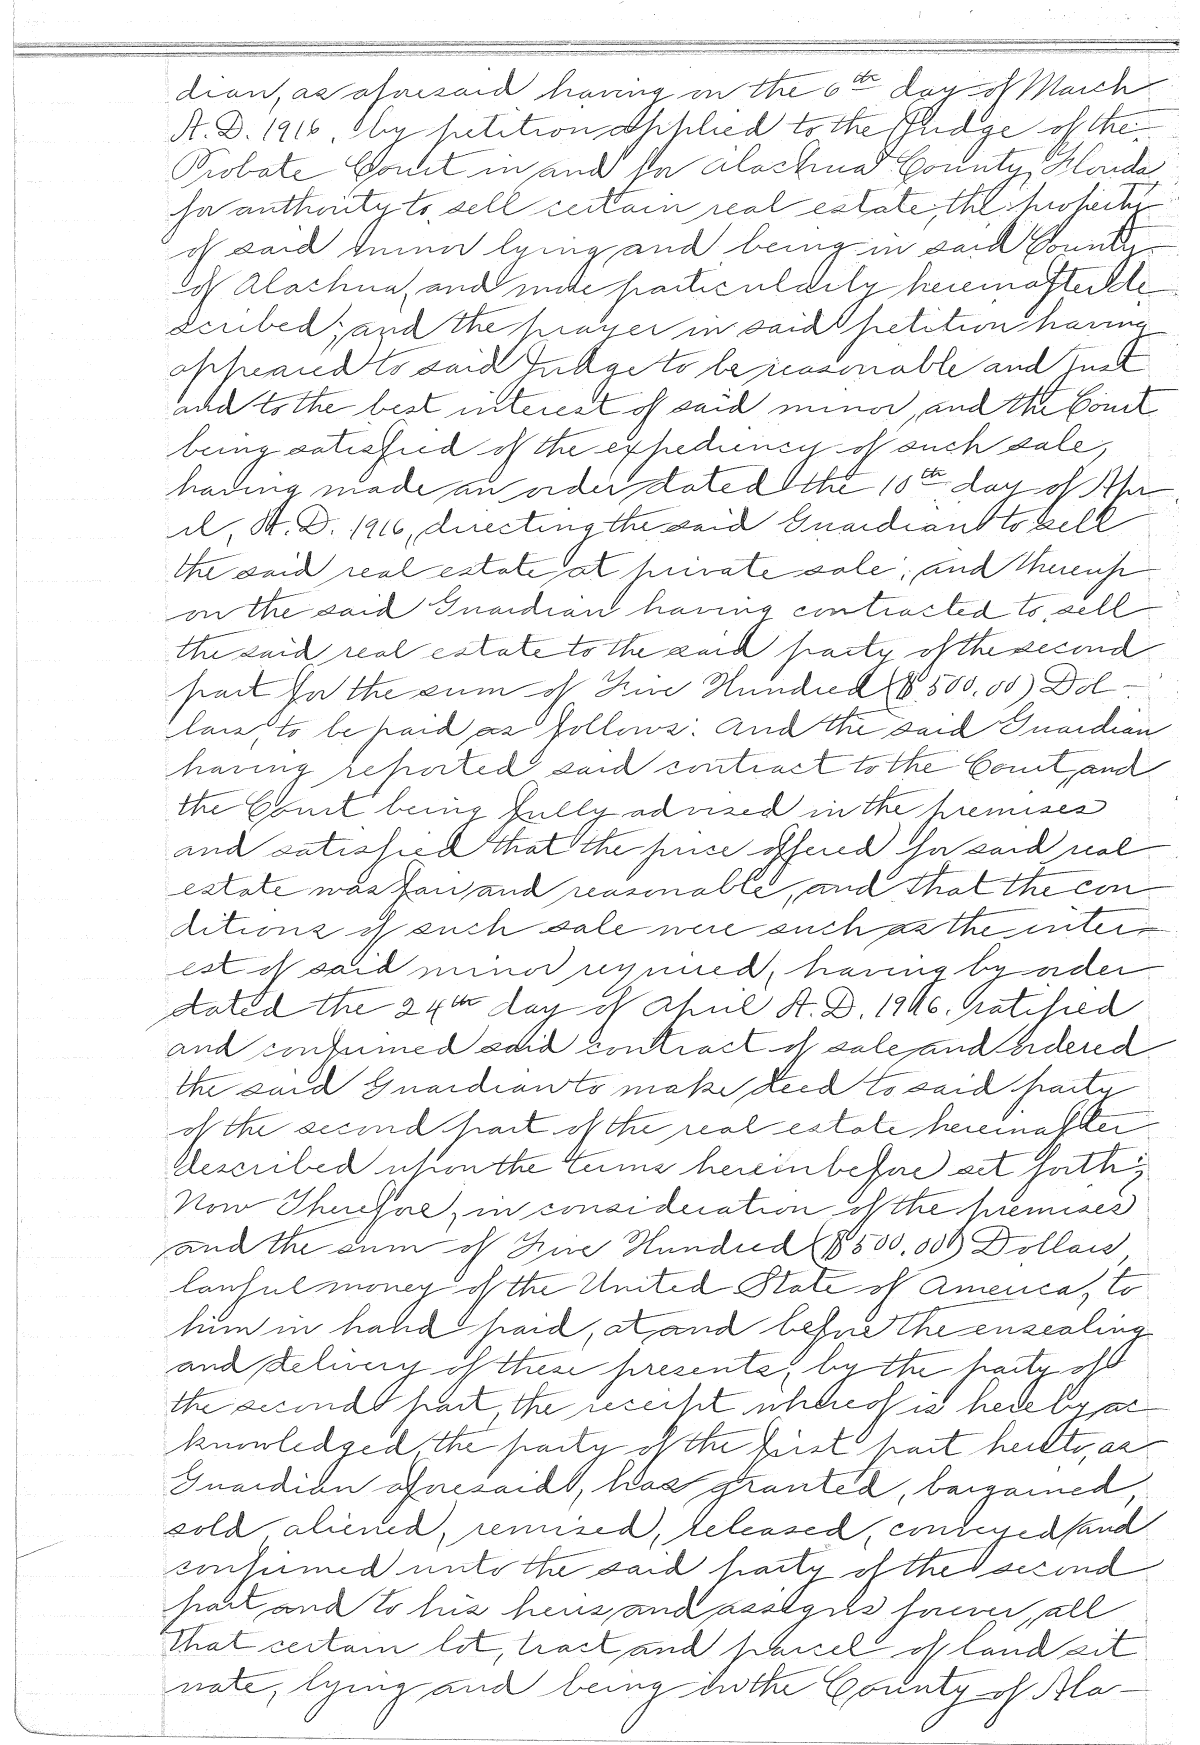 dian, as aforesaid having on the 6th day of March
A. D. 1916, by petition applied to the Judge of the
Probate Court in and for Alachua County, Florida
for authority to sell certain real estate, the property
of said minor lying and being in said County
of Alachua, and more particularly hereinafter de
scribed; and the prayer in said petition having
appeared to said Judge to be reasonable and just
and to the best interest of said minor, and the Court
being satisfied of the expediency of such sale,
having made an order dated the 10th day of Apr
il, A. D. 1916, directing the said Guardian to sell
the said real estate at private sale; and thereup
on the said Guardian having contracted to sell
the said real estate to the said party of the second
part for the sum of Five Hundred ($500.00) Dol-
lars, to be paid as follows: And the said Guardian
having reported said contract to the Court, and
the Court being fully advised in the premises
and satisfied that the price offered for said real
estate was fair and reasonable, and that the con
ditions of such sale were such as the inter-
est of said minor required, having by order
dated the 24th day of April A. D. 1916. ratified
and confirmed said contract of sale and ordered
the said Guardian to make deed to said party
of the second part of the real estate hereinafter
described upon the terms hereinbefore set forth;
Now Therefore, in consideration of the premises
and the sum of Five Hundred ($500.00) Dollars,
lawful money of the United State of America, to
him in hand paid, at and before the ensealing
and delivery of these presents, by the party of
the second part, the receipt whereof is hereby ac
knowledged, the party of the first part hereto, as
Guardian aforesaid, has granted, bargained,
sold, aliened, remised, released, conveyed and
confirmed unto the said party of the second
part and to his heirs and assigns forever, all
that certain lot, tract and parcel of land sit
uate, lying and being in the County of Ala-